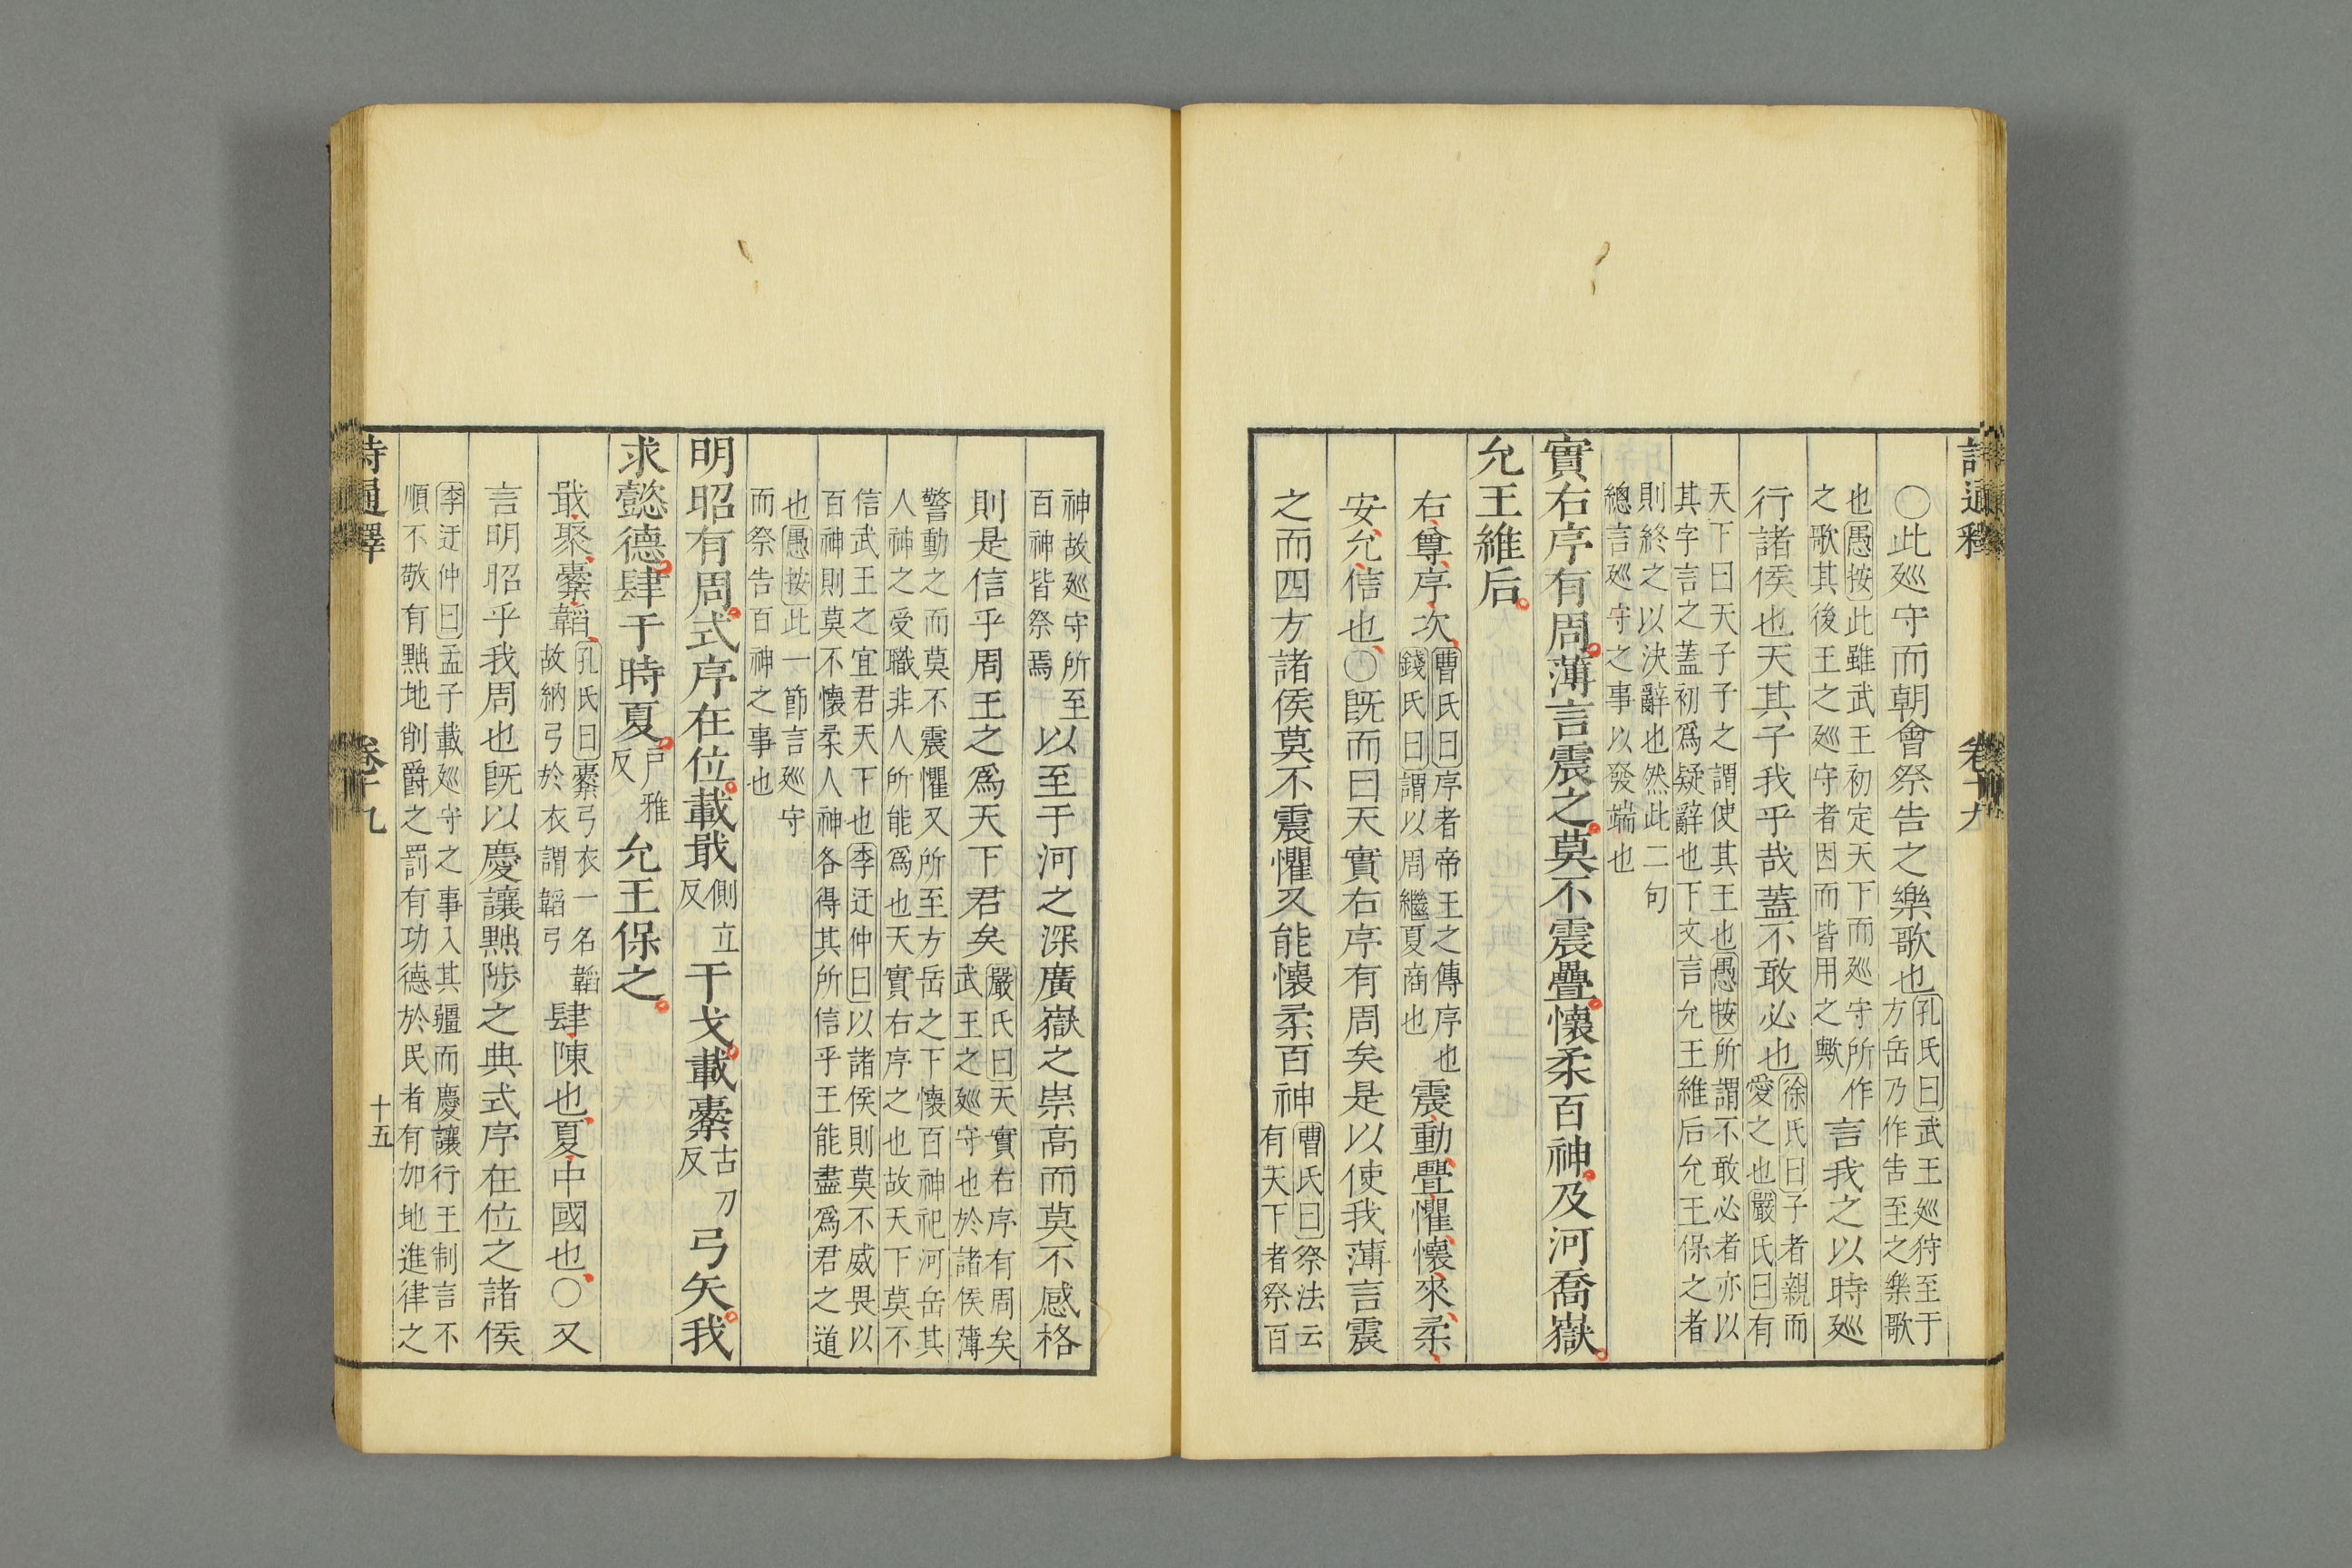 詩通釋 卷十九
〇此廵守而朝會祭告之樂歌也孔氏曰武王廵狩至于方岳乃作告至之樂歌
也愚按此雖武王初定天下而廵守所作之歌其後王之廵守者因而皆用之歟言我之以時廵
行諸侯也天其子我乎哉蓋不敢必也徐氏曰子者親而愛之也嚴氏曰有
天下曰天子子之謂使其王也愚按所謂不敢必者亦以其字言之蓋初爲疑辭也下文言允王維后允王保之者
則終之以决辭也然此二句總言廵守之事以發端也
實右序有周薄言震之莫不震疊懷柔百神及河喬嶽
允王維后
右尊序次曹氏曰序者帝王之傳序也錢氏曰謂以周繼夏商也震動疊懼懷來柔
安允信也〇旣而曰天實右序有周矣是以使我薄言震
之而四方諸侯莫不震懼又能懷柔百神曹氏曰祭法云有天下者祭百
神故廵守所至百神皆祭焉以至于河之深廣嶽之崇高而莫不感格
則是信乎周王之爲天下君矣嚴氏曰天實右序有周矣武王之廵守也於諸侯薄
警動之而莫不震懼又所至方岳之下懷百神祀河岳其人神之受職非人所能爲也天實右序之也故天下莫不
信武王之宜君天下也李迂仲曰以諸侯則莫不威畏以百神則莫不懷柔人神各得其所信乎王能盡爲君之道
也愚按此一節言廵守而祭告百神之事也
明昭有周式序在位載戢側立反干戈載櫜古刀反弓矢我
求懿德肆于時夏戶雅反允王保之
戢聚櫜韜孔氏曰櫜弓衣一名韜故納弓於衣謂韜弓肆陳也夏中國也〇又
言明昭乎我周也旣以慶讓黜陟之典式序在位之諸侯
李迂仲曰孟子載廵守之事入其疆而慶讓行王制言不順不敬有黜地削爵之罰有功德於民者有加地進律之
詩通釋 卷十九 十五